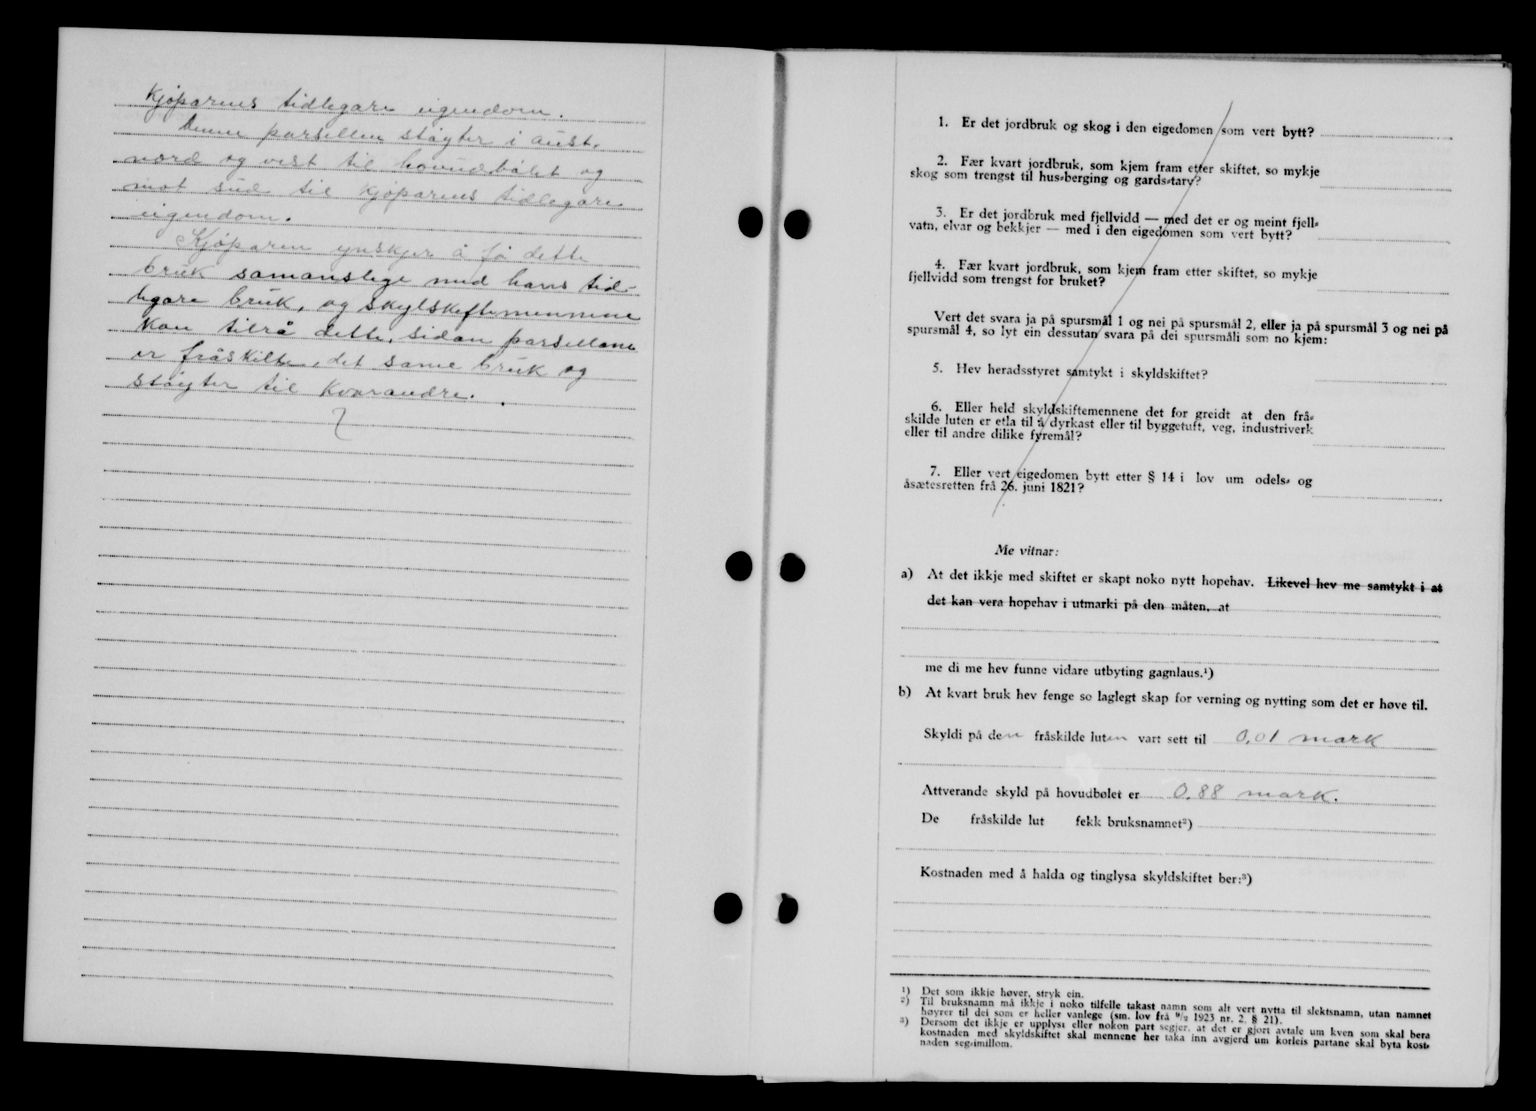 Kjøparens tidlegare eigendom.
Denne parsellen støyter i aust,
nord og vest til hovudbølet og
mot sud til kjøparens tidlegare
eigendom.
Kjøparen ynskjer å få dette
bruk samanslege med hans tid-
legare bruk, og skylskiftemennene
kan tilrå dette, sidan parsellane
er fråskilte det same bruk og
støyter til kvarandre.
1. Er det jordbruk og skog i den eigedomen som vert bytt?
2. Fær kvart jordbruk, som kjem fram etter skiftet, so mykje
skog som trengst til hus-berging og gards-tarv?
3. Er det jordbruk med fjellvidd — med det er og meint fjell-
vatn, elvar og bekkjer — med i den eigedomen som vert bytt?
4. Fær kvart jordbruk, som kjem fram etter skiftet, so mykje
fjellvidd som trengst for bruket?
Vert det svara ja på spursmål 1 og nei på spursmål 2, eller ja på spursmål 3 og nei på
spursmål 4, so lyt ein dessutan svara på dei spursmåli som no kjem:
5. Hev heradsstyret samtykt i skyldskiftet?
6. Eller held skyldskiftemennene det for greidt at den frå-
skilde luten er etla til å dyrkast eller til byggetuft, veg, industriverk
eller til andre dilike fyremål?
7. Eller vert eigedomen bytt etter § 14 i lov um odels- og
åsætesretten frå 26. juni 1821?
Me vitnar:
a) At det ikkje med skiftet er skapt noko nytt hopehav. Likevel hev me samtykt i at
det kan vera hopehav i utmarki på den måten, at
me di me hev funne vidare utbyting gagnlaus.¹)
b) At kvart bruk hev fenge so laglegt skap for verning og nytting som det er høve til.
Skyldi på den fråskilde luten vart sett til 0,01 mark
Attverande skyld på hovudbølet er 0.88 mark.
De fråskilde lut fekk bruksnamnet²)
Kostnaden med å halda og tinglysa skyldskiftet ber:³)
¹) Det som ikkje høver, stryk ein.
²) Til bruksnamn må ikkje i noko tilfelle takast namn som alt vert nytta til slektsnamn, utan namnet
høyrer til dei som er heller vanlege (sm. lov frå ⁹/₂ 1923 nr. 2 § 21).
³) Dersom det ikkje er upplyst eller nokon part segjer, at det er gjort avtale um kven som skal bera
kostnaden med skyldskiftet skal mennene her taka inn avgjerd um korleis partane skal byta kost-
naden seg-imillom.